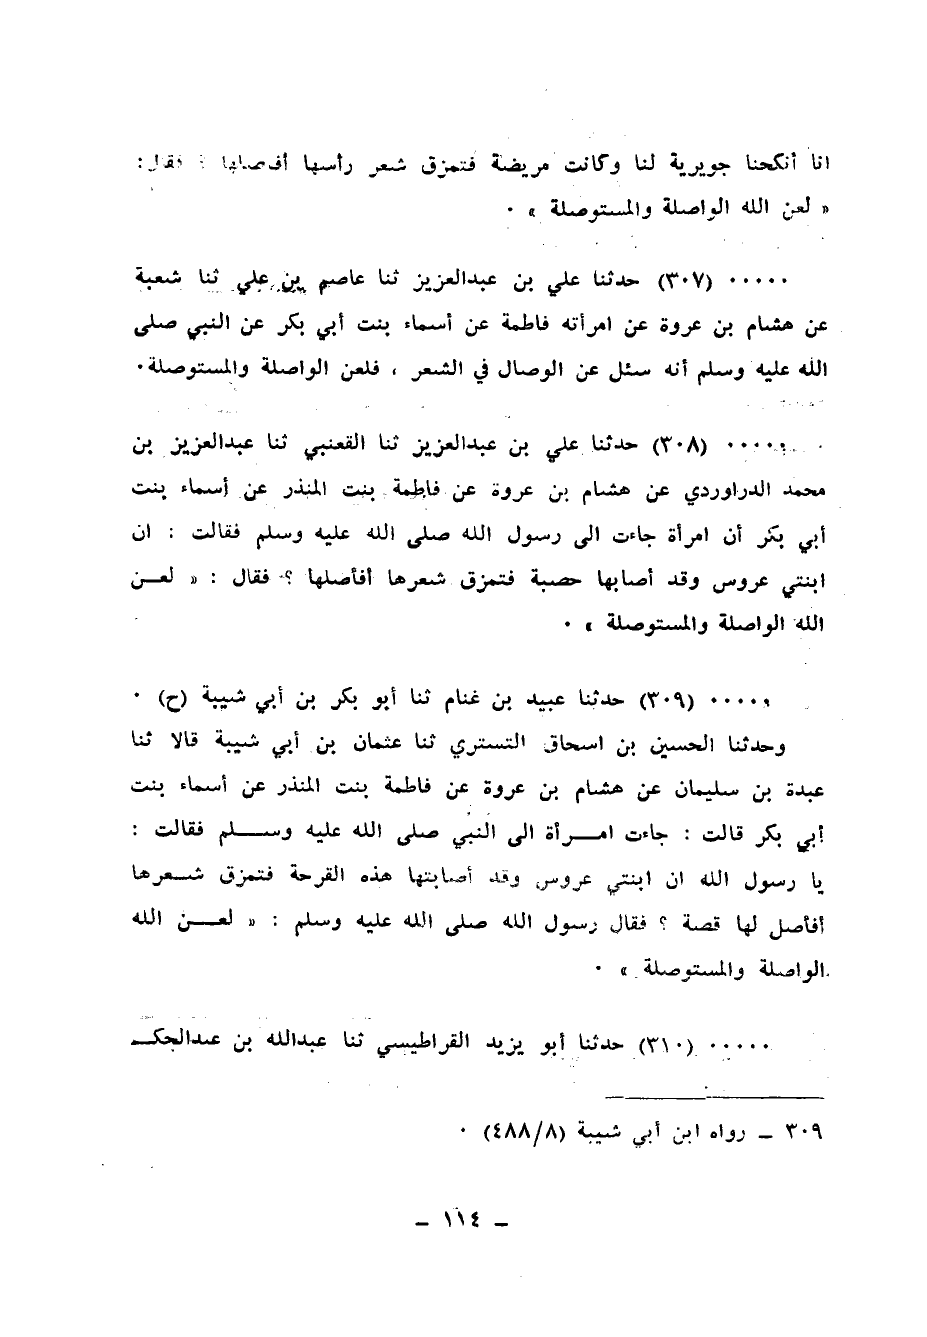 انا أنكحنا جويرية لنا وكانت مريضة فتمزق شعر رأسها أفصلها ؟ فقال :
« لعن الله الواصلة والمستوصلة » ٠
٠٠٠٠٠ (٣٠٧) حدثنا علي بن عبدالعزيز ثنا عاصم بن علي ثنا شعبة
عن هشام بن عروة عن امرأته فاطمة عن أسماء بنت أبي بكر عن النبي صلى
الله عليه وسلم أنه سئل عن الوصال في الشعر ، فلعن الواصلة والمستوصلة٠
٠٠٠٠٠ (٣٠٨) حدثنا علي بن عبدالعزيز ثنا القعنبي ثنا عبدالعزيز بن
محمد الدراوردي عن هشام بن عروة عن فاطمة بنت المنذر عن أسماء بنت
أبي بكر أن امرأة جاءت الى رسول الله صلى الله عليه وسلم فقالت : ان
ابنتي عروس وقد أصابها حصبة فتمزق شعرها أفأصلها ؟ فقال : « لعـن
الله الواصلة والمستوصلة » ٠
٠٠٠٠٠ (٣٠٩) حدثنا عبيد بن غنام ثنا أبو بكر بن أبي شيبة (ح) ٠
وحدثنا الحسين بن اسحاق التستري ثنا عثمان بن أبي شيبة قالا ثنا
عبدة بن سليمان عن هشام بن عروة عن فاطمة بنت المنذر عن أسماء بنت
أبي بكر قالت : جاءت امـرأة الى النبي صلى الله عليه وسـلم فقالت :
يا رسول الله ان ابنتي عروس وقد أصابتها هذه القرحة فتمزق شـعرها
أفأصل لها قصة ؟ فقال رسول الله صلى الله عليه وسلم : « لعـن الله
الواصلة والمستوصلة » ٠
٠٠٠٠٠ (٣١٠) حدثنا أبو يزيد القراطيسي ثنا عبدالله بن عبدالحكـ
٣٠٩ ـ رواه ابن أبي شيبة (٤٨٨/٨) ٠
ـ ١١٤ ـ